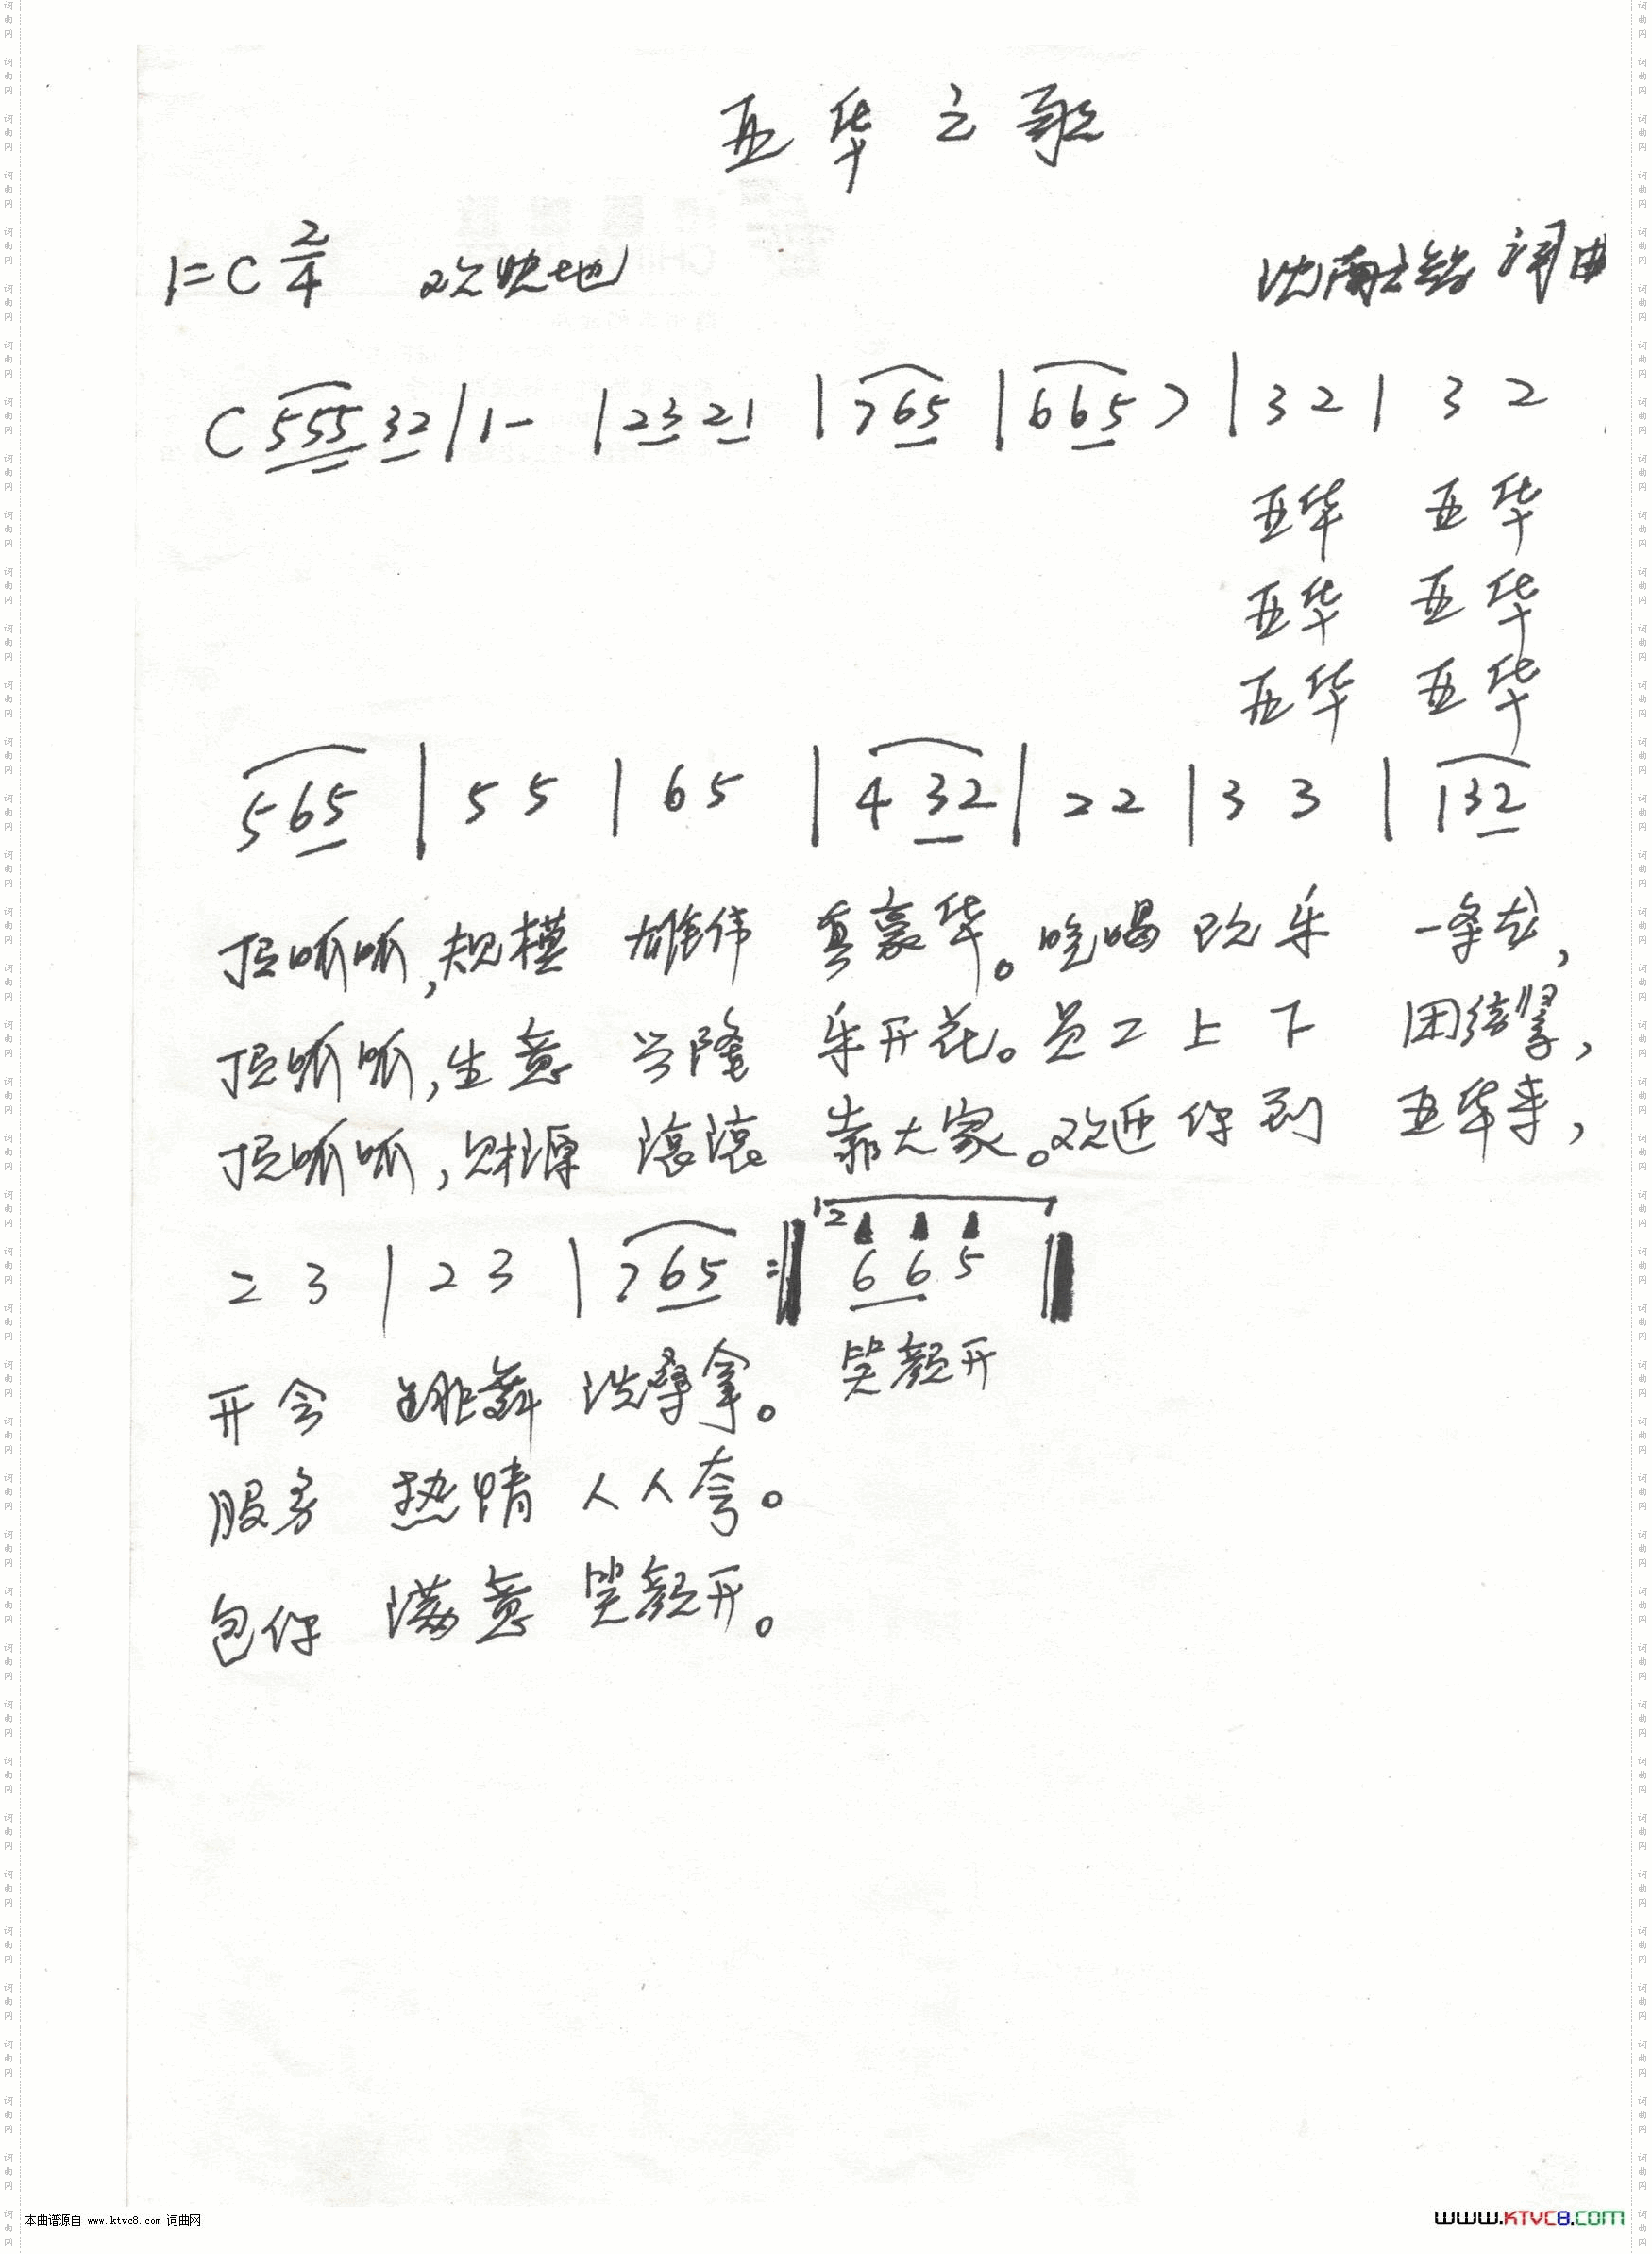 亚华之歌
1=C 2/4 欢快地 沈南 词曲
( 555 32 | 1 - | 23 21 | 765 | 665 ) | 3 2 | 3 2
亚华 亚华
亚华 亚华
亚华 亚华
5 65 | 5 5 | 6 5 | 4 32 | 2 2 | 3 3 | 1 32
顶呱呱,规模 雄伟 真豪华。吃喝 玩乐 一条龙,
顶呱呱,生意 兴隆 乐开花。员工 上下 团结紧,
顶呱呱,财源 滚滚 靠大家。欢迎 你到 亚华来,
2 3 | 2 3 | 7 65 :‖ 12 6 6 5 ‖
开会 跳舞 洗桑拿。 笑颜开
服务 热情 人人夸。
包你 满意 笑颜开。
本曲谱源自 www.ktvc8.com 词曲网
www.KTVC8.com